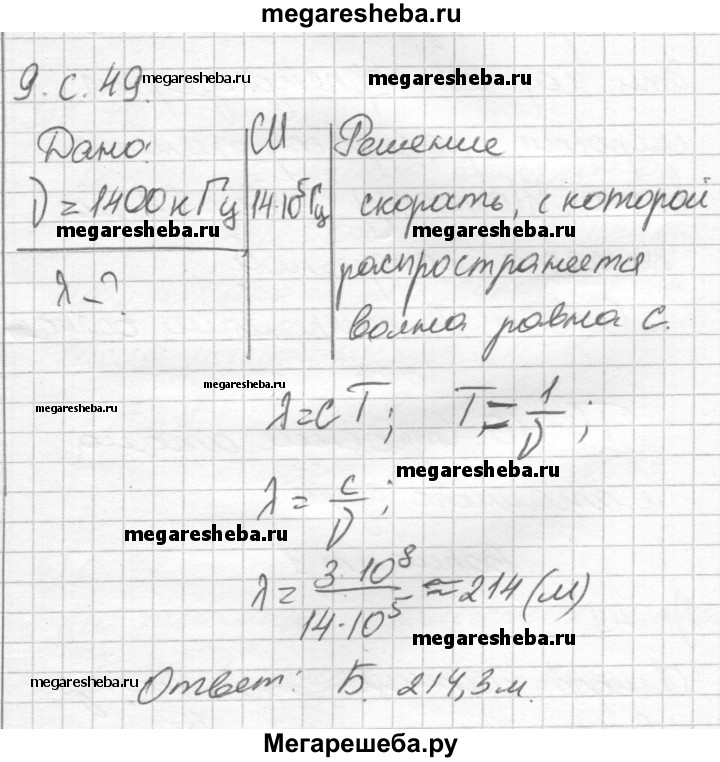 megaresheba.ru
9. с. 49. megaresheba.ru megaresheba.ru
Дано: СИ Решение
ν = 1400 кГц 14·10⁵Гц скорать, с которой
megaresheba.ru megaresheba.ru
λ - ? распространяется
волна равна с.
megaresheba.ru
megaresheba.ru λ = cT; T = 1/ν;
megaresheba.ru
λ = c/ν;
megaresheba.ru
λ = 3·10⁸/14·10⁵ ≈ 214 (м)
megaresheba.ru
megaresheba.ru Ответ: Б. 214,3 м.
Мегарешеба.ру